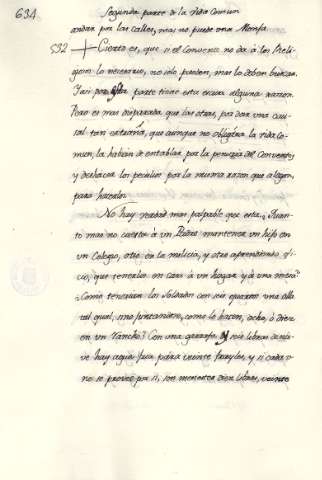 634
Segunda parte de la Vida Comun
andar por las calles, mas no puede una Monja.
532 Cierto es, que si el Convento no dà à los Reli-
giosos lo necesario, no solo pueden, mas lo deben buscar.
Y asi por esta parte tiene esta escusa alguna razon.
Pero es mas disparatada que las otras, por dar una cau-
sal tan estraña, que aunque no obligára la vida Co-
mun, la habian de entablar por la penuria del Convento,
y deshacer los peculios por la misma razon que alegan,
para hacerlos.
No hay verdad mas palpable que esta. Quan-
to mas no cuesta à un Padre mantener un hijo en
un Colegio, otro en la milicia, y otro aprendiendo ofi-
cio, que tenerlos en casa à un hogar y à una mesa?
Como tendrian los Soldados con seis quartos una olla
tal qual, sino juntandose, como lo hacen, ocho, ò diez
en un Rancho? Con una garrafa, y seis libras de nie-
ve hay agua fria para veinte frayles, y si cada u-
no se provee por si, son menester diez libras, veinte